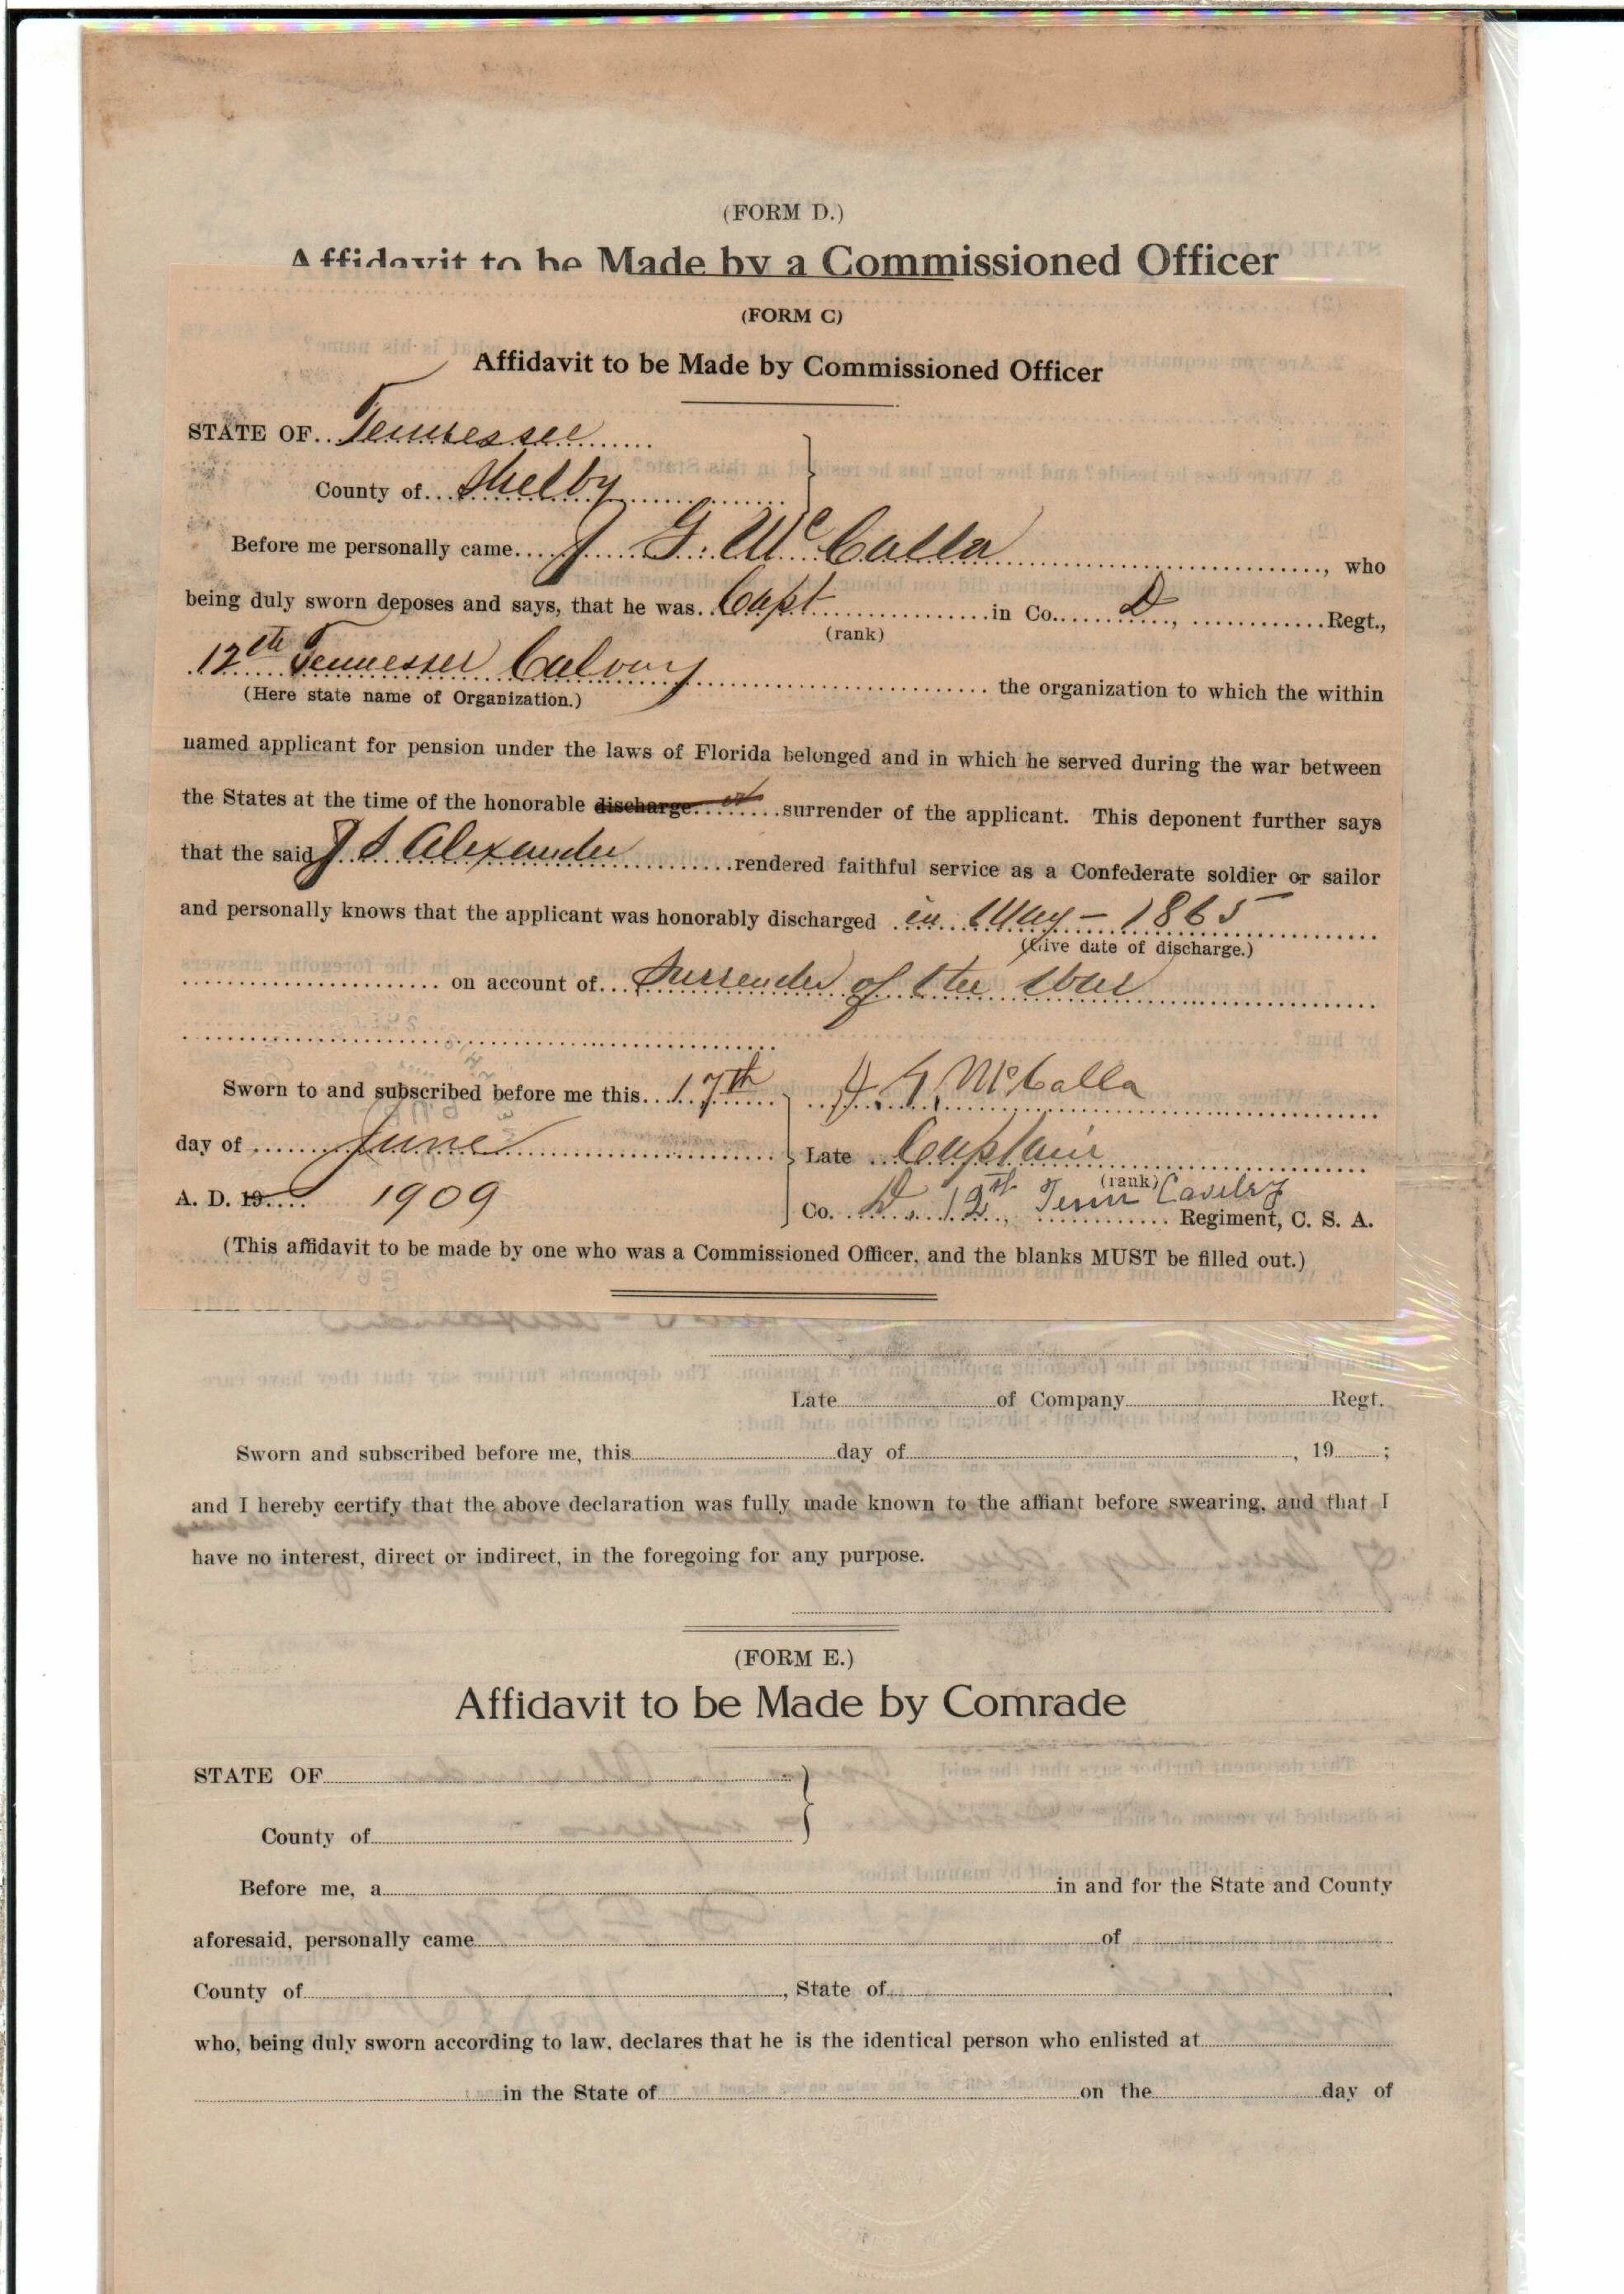 (FORM D.)
Affidavit to be Made by a Commissioned Officer
(FORM C)
Affidavit to be Made by Commissioned Officer
STATE OF.. Tennessee
County of... Shelby
Before me personally came.... J. G. McCalla, who
being duly sworn deposes and says, that he was. Capt in Co. D, Regt.,
(rank)
12th Tennessee Calvary the organization to which the within
(Here state name of Organization.)
named applicant for pension under the laws of Florida belonged and in which he served during the war between
the States at the time of the honorable discharge or surrender of the applicant. This deponent further says
that the said J S Alexander rendered faithful service as a Confederate soldier or sailor
and personally knows that the applicant was honorably discharged in May - 1865
(Give date of discharge.)
on account of... Surrender of the War
Sworn to and subscribed before me this.. 17th J. G. McCalla
day of June Late Captain
(rank)
A. D. 19.... 1909 Co. D. 12th Tenn Cavelry Regiment, C. S. A.
(This affidavit to be made by one who was a Commissioned Officer, and the blanks MUST be filled out.)
Late of Company Regt.
Sworn and subscribed before me, this day of , 19 ;
and I hereby certify that the above declaration was fully made known to the affiant before swearing, and that I
have no interest, direct or indirect, in the foregoing for any purpose.
(FORM E.)
Affidavit to be Made by Comrade
STATE OF
County of
Before me, a in and for the State and County
aforesaid, personally came of
County of , State of
who, being duly sworn according to law, declares that he is the identical person who enlisted at
in the State of on the day of